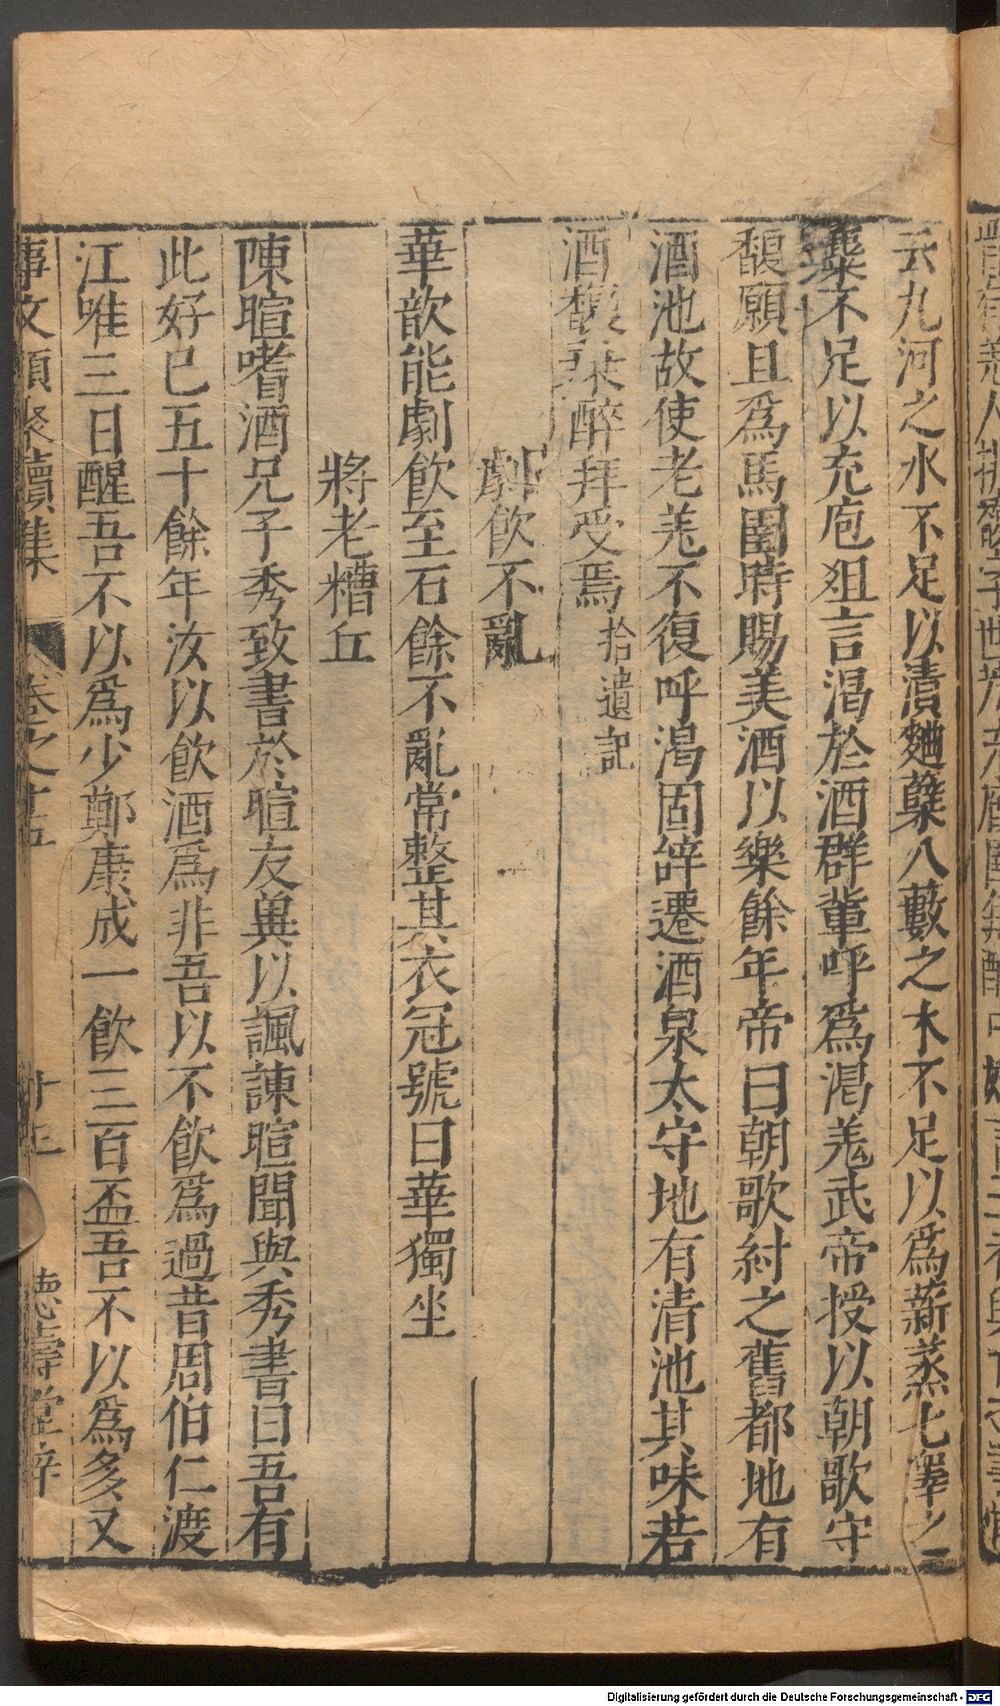 云九河之水不足以漬麯蘖八藪之木不足以爲薪蒸七澤之
麋不足以充庖俎言渴於酒群輩呼爲渴羌武帝授以朝歌守
馥願且爲馬圉時賜美酒以樂餘年帝曰朝歌紂之舊都地有
酒池故使老羌不復呼渴固辭遷酒泉太守地有清池其味若
酒馥乘醉拜受焉 拾遺記
劇飲不亂
華歆能劇飲至石餘不亂常整其衣冠號曰華獨坐
將老糟丘
陳暄嗜酒兄子秀致書於暄友兾以諷諫暄聞與秀書曰吾有
此好已五十餘年汝以飲酒爲非吾以不飲爲過昔周伯仁渡
江唯三日醒吾不以爲少鄭康成一飲三百盃吾不以爲多又
事文類聚續集 卷之十五 十三 德壽堂梓
Digitalisierung gefördert durch die Deutsche Forschungsgemeinschaft - DFG